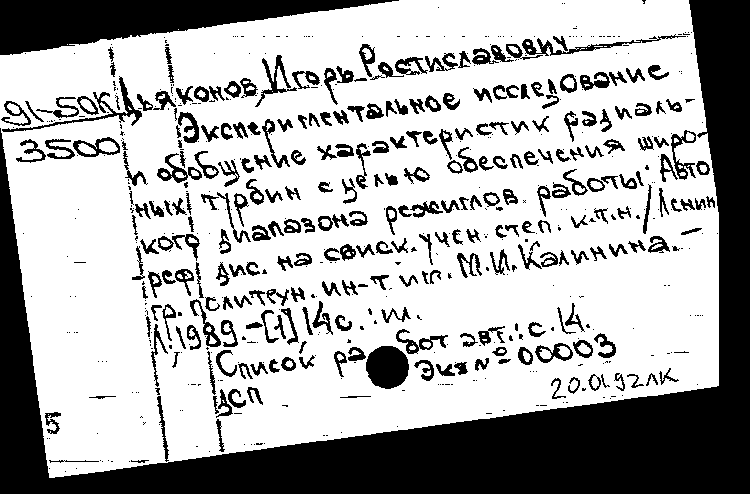 91-50К Дьяконов, Игорь Ростиславович
3500 Экспериментальное исследование
и обобщение характеристик радиаль-
ных турбин с целью обеспечения широ-
кого диапазона режимов работы: Авто
реф. дис. на соиск. учен. степ. к.т.н. / Ленин
гр. политехн. ин-т им. М.И. Калинина. –
Л., 1989. – [1] 14 с. : ил.
Список работ авт.: с. 14.
ДСП Экз № 00003
20.01.92 ЛК
5